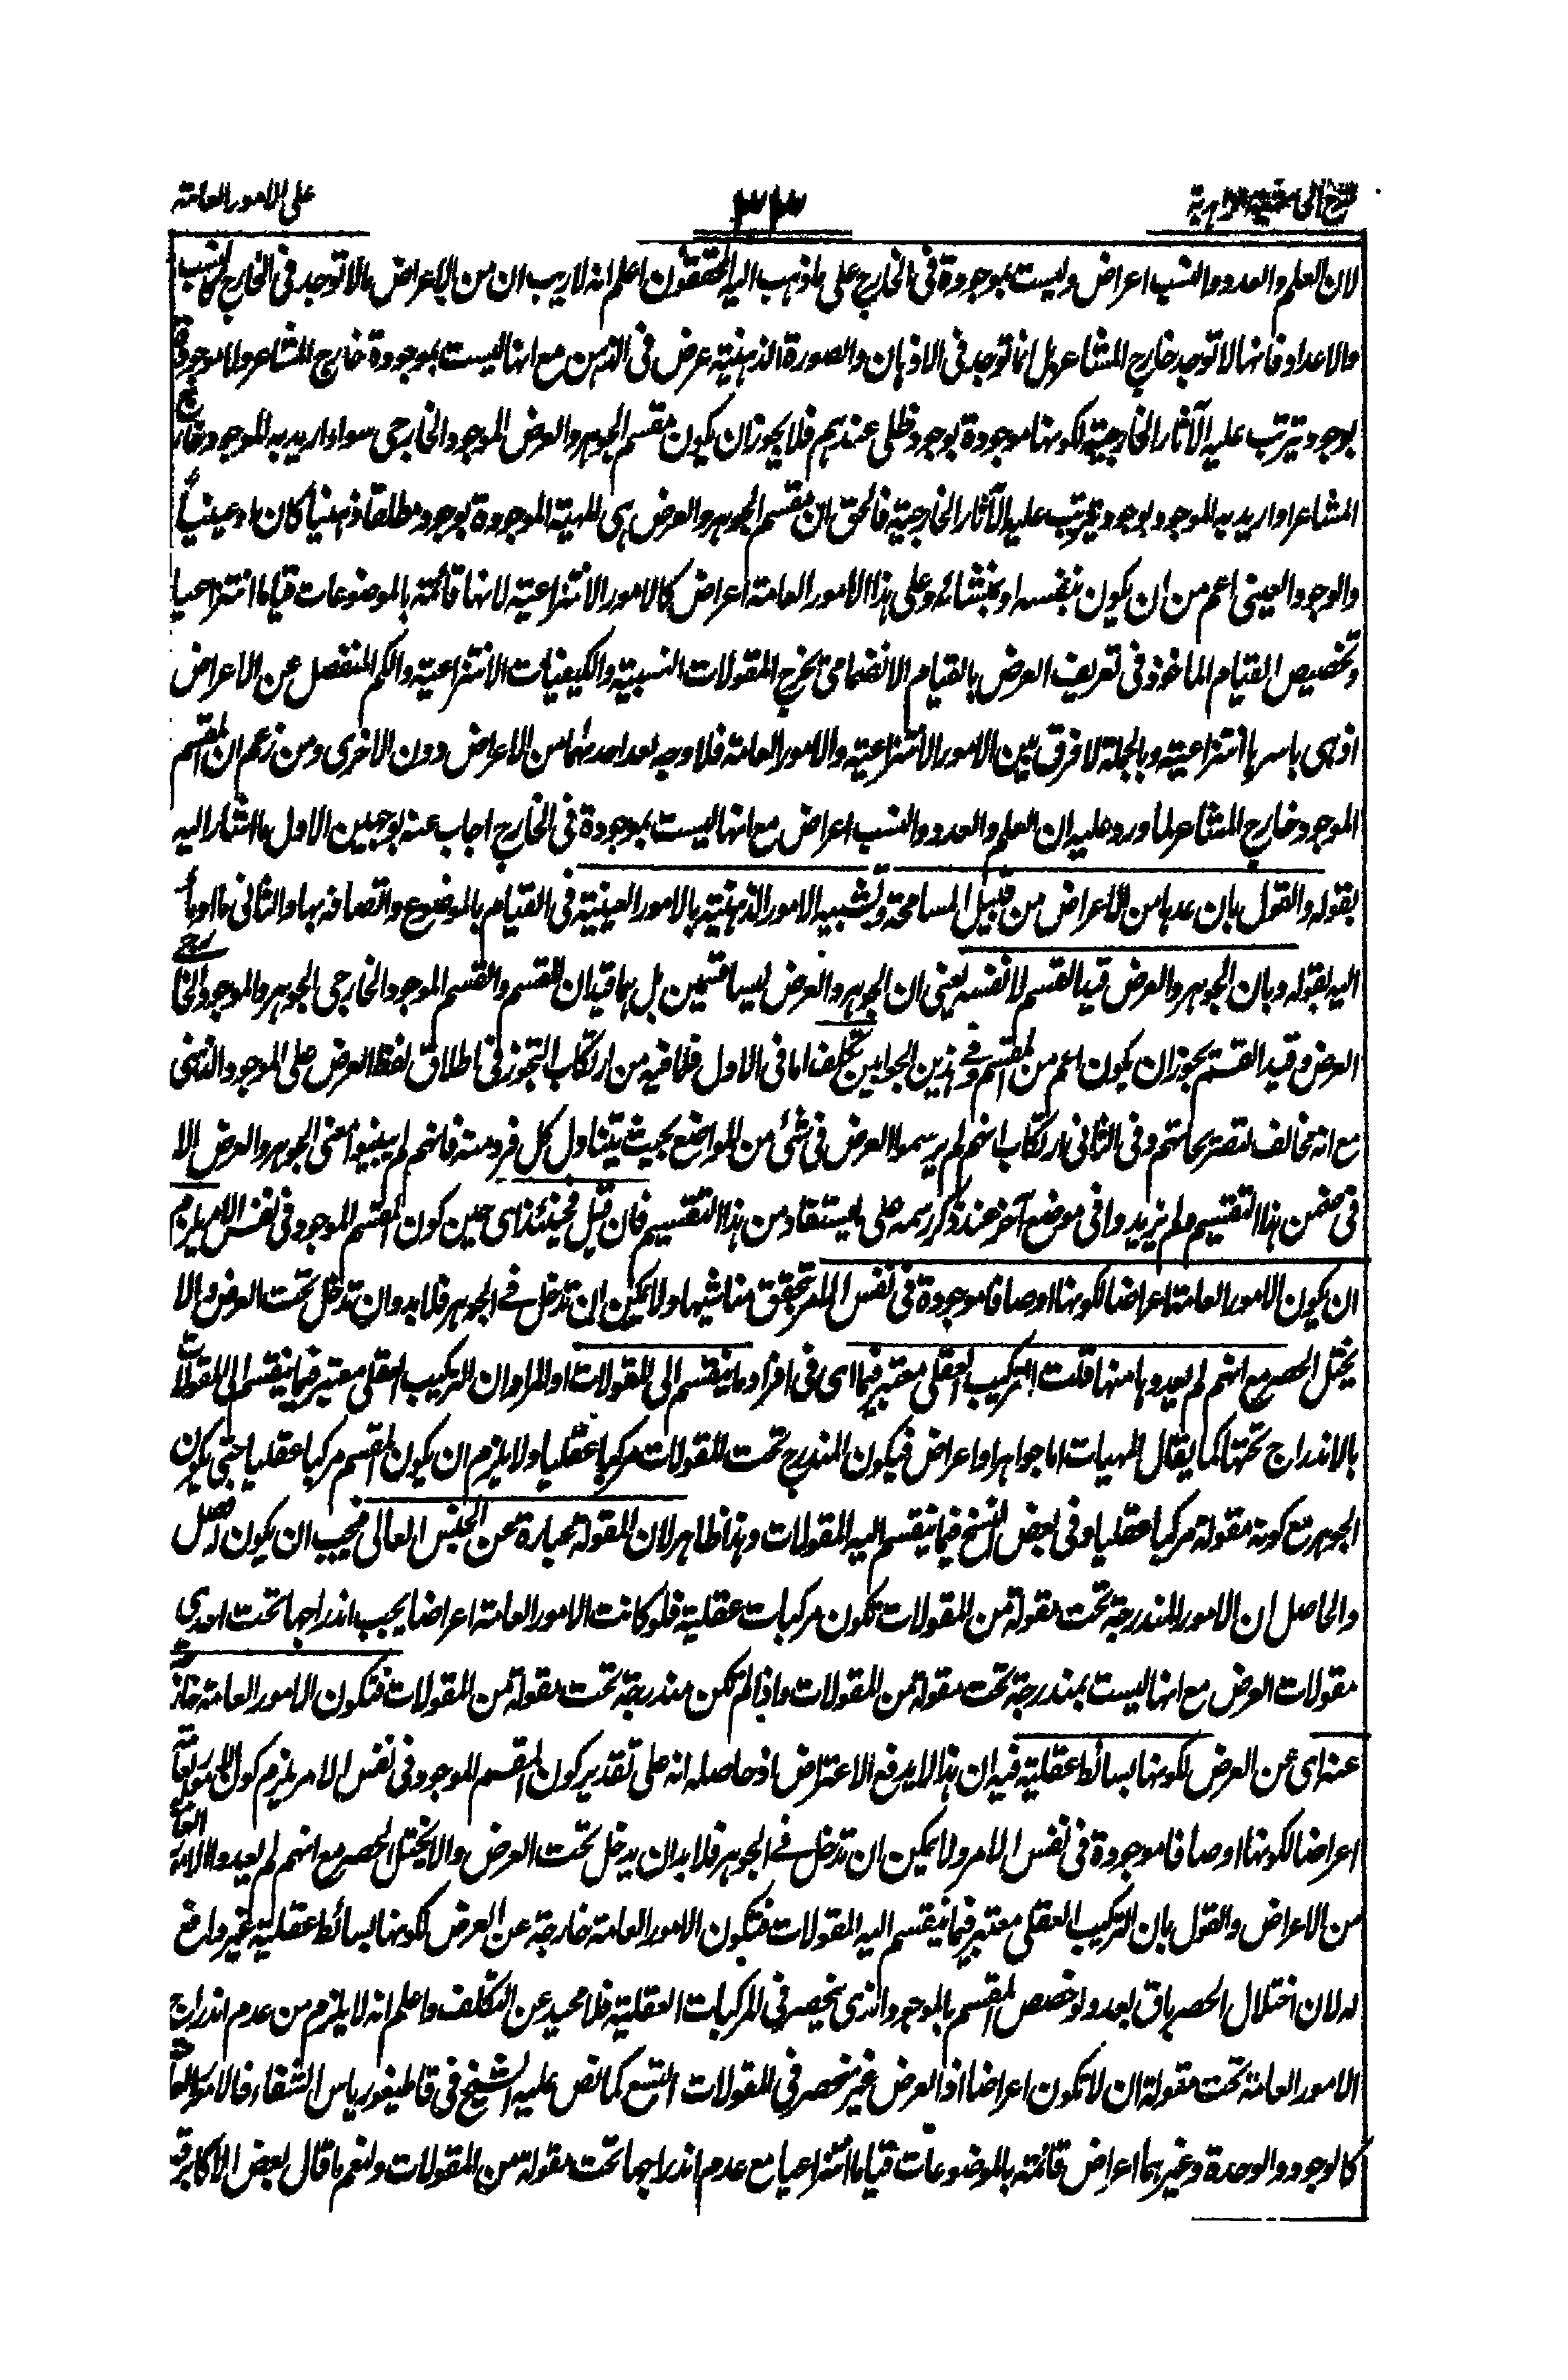 شرح الحاشية الزاهدية
٣٣
على الامور العامة
لان العلم والعدد والنسب اعراض وليست بموجودة فى الخارج على ما ذهب اليه المحققون اعلم انه لا ريب ان من الاعراض ما لا توجد فى الخارج كالنسب
والاعداد فانها لا توجد خارج المشاعر بل انما توجد فى الاذهان والصورة الذهنية عرض فى الذهن مع انها ليست بموجودة خارج المشاعر ولا موجودة
بوجود تترتب عليه الآثار الخارجية لكونها موجودة بوجود ظلى عندهم فلا يجوز ان يكون مقسم الجوهر والعرض الموجود الخارجى سواء اريد به الموجود خارج
المشاعر او اريد به الموجود بوجود يترتب عليه الآثار الخارجية فالحق ان مقسم الجوهر والعرض هى المهية الموجودة بوجود مطلقا ذهنيا كان او عينياً
والوجود العينى اعم من ان يكون بنفسه او بمنشائه وعلى هذا الامور العامة اعراض كالامور الانتزاعية لانها قائمة بالموضوعات قياما انتزاعيا
وتخصيص القيام الماخوذ فى تعريف العرض بالقيام الانضمامى يخرج المقولات النسبية والكيفيات الانتزاعية والكم المنفصل عن الاعراض
اذ هى باسرها انتزاعية وبالجملة لا فرق بين الامور الانتزاعية والامور العامة فلا وجه لعد احدهما من الاعراض دون الاخرى ومن زعم ان المقسم
الموجود خارج المشاعر لما ورد عليه ان العلم والعدد والنسب اعراض مع انها ليست بموجودة فى الخارج اجاب عنه بوجهين الاول ما اشار اليه
بقوله والقول بان عدها من الاعراض من قبيل المسامحة وتشبيه الامور الذهنية بالامور العينية فى القيام بالموضوع واتصافه بها والثانى ما اومأ
اليه بقوله وبان الجوهر والعرض قيد القسم لا نفسه يعنى ان الجوهر والعرض ليسا قسمين بل هما قيدان للقسم والقسم الموجود الخارجى الجوهر والموجود الخارجى
العرض وقيد القسم يجوز ان يكون اعم من المقسم وفى هذين الجوابين تكلف اما فى الاول فلما فيه من ارتكاب التجوز فى اطلاق لفظ العرض على الموجود الذهنى
مع انه مخالف لتصريحاتهم وفى الثانى ارتكاب انهم لم يرسموا العرض فى شئ من المواضع بحيث يتناول كل فرد منه فانهم لم يبينوا معنى الجوهر والعرض الا
فى ضمن هذا التقسيم ولم يزيدوا فى موضع آخر عند ذكر رسمه على يستفاد من هذا التقسيم فان قيل فحينئذ اى حين كون المقسم الموجود فى نفس الامر يلزم
ان يكون الامور العامة اعراضا لكونها اوصافا موجودة فى نفس الامر بتحقق مناشيها ولا يمكن ان تدخل فى الجوهر فلا بد وان تدخل تحت العرض والا
يختل الحصر مع انهم لم يعدوها منها قلت التركيب العقلى معتبر فيما اى فى افراد ما ينقسم الى المقولات او المراد ان التركيب العقلى معتبر فيما ينقسم الى المقولات
بالاندراج تحتها كما يقال المهيات اما جواهر او اعراض فيكون المندرج تحت المقولات مركبا عقليا ولا يلزم ان يكون المقسم مركبا عقليا حتى يكون
الجوهر مع كونه مقولة مركبا عقليا وفى بعض النسخ فيما ينقسم اليه المقولات وهذا ظاهر لان المقولة عبارة عن الجنس العالى فيجب ان يكون له فصل
والحاصل ان الامور المندرجة تحت مقولة من المقولات تكون مركبات عقلية فلو كانت الامور العامة اعراضا يجب اندراجها تحت احدى
مقولات العرض مع انها ليست بمندرجة تحت مقولة من المقولات واذا لم تكن مندرجة تحت مقولة من المقولات فتكون الامور العامة خارجة
عنه اى عن العرض لكونها بسائط عقلية فيه ان هذا لا يدفع الاعتراض اذ حاصله انه على تقدير كون المقسم الموجود فى نفس الامر يلزم كون الامور العامة
اعراضا لكونها اوصافا موجودة فى نفس الامر ولا يمكن ان تدخل فى الجوهر فلا بد ان يدخل تحت العرض والا يختل الحصر مع انهم لم يعدوا الامور العامة
من الاعراض والقول بان التركيب العقلى معتبر فيما ينقسم اليه المقولات فتكون الامور العامة خارجة عن العرض لكونها بسائط عقلية غير دافع
له لان اختلال الحصر باق بعد ولو خصص المقسم بالموجود الذى ينحصر فى المركبات العقلية فلا محيد عن التكلف واعلم انه لا يلزم من عدم اندراج
الامور العامة تحت مقولة ان لا تكون اعراضا اذ العرض غير منحصر فى المقولات التسع كما نص عليه الشيخ فى قاطيغورياس الشفاء فالامور العامة
كالوجود والوحدة وغيرهما اعراض قائمة بالموضوعات قياما انتزاعيا مع عدم اندراجها تحت مقولة من المقولات ولنعم ما قال بعض الاكابر قده